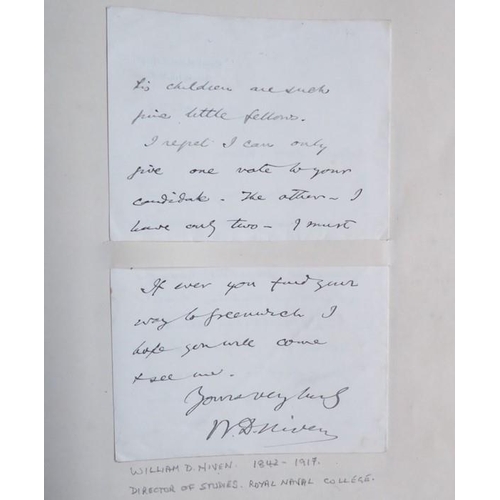 his children are such
fine little fellows.
I regret I can only
give one vote to your
candidate. The other – I
have only two – I must
If ever you find your
way to Greenwich I
hope you will come
& see me.
Yours very truly
W.D. Niven
WILLIAM D. NIVEN. 1842-1917.
DIRECTOR OF STUDIES. ROYAL NAVAL COLLEGE.